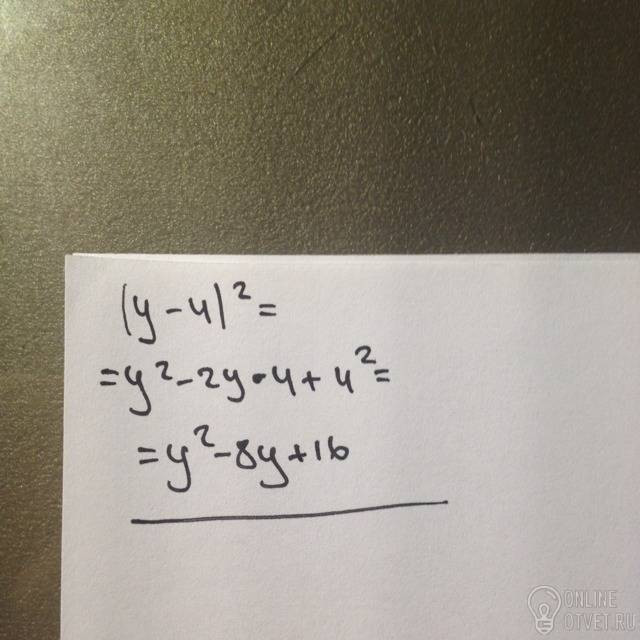 (y-4)²=
=y²-2y•4+4²=
=y²-8y+16
ONLINE
OTVET.RU